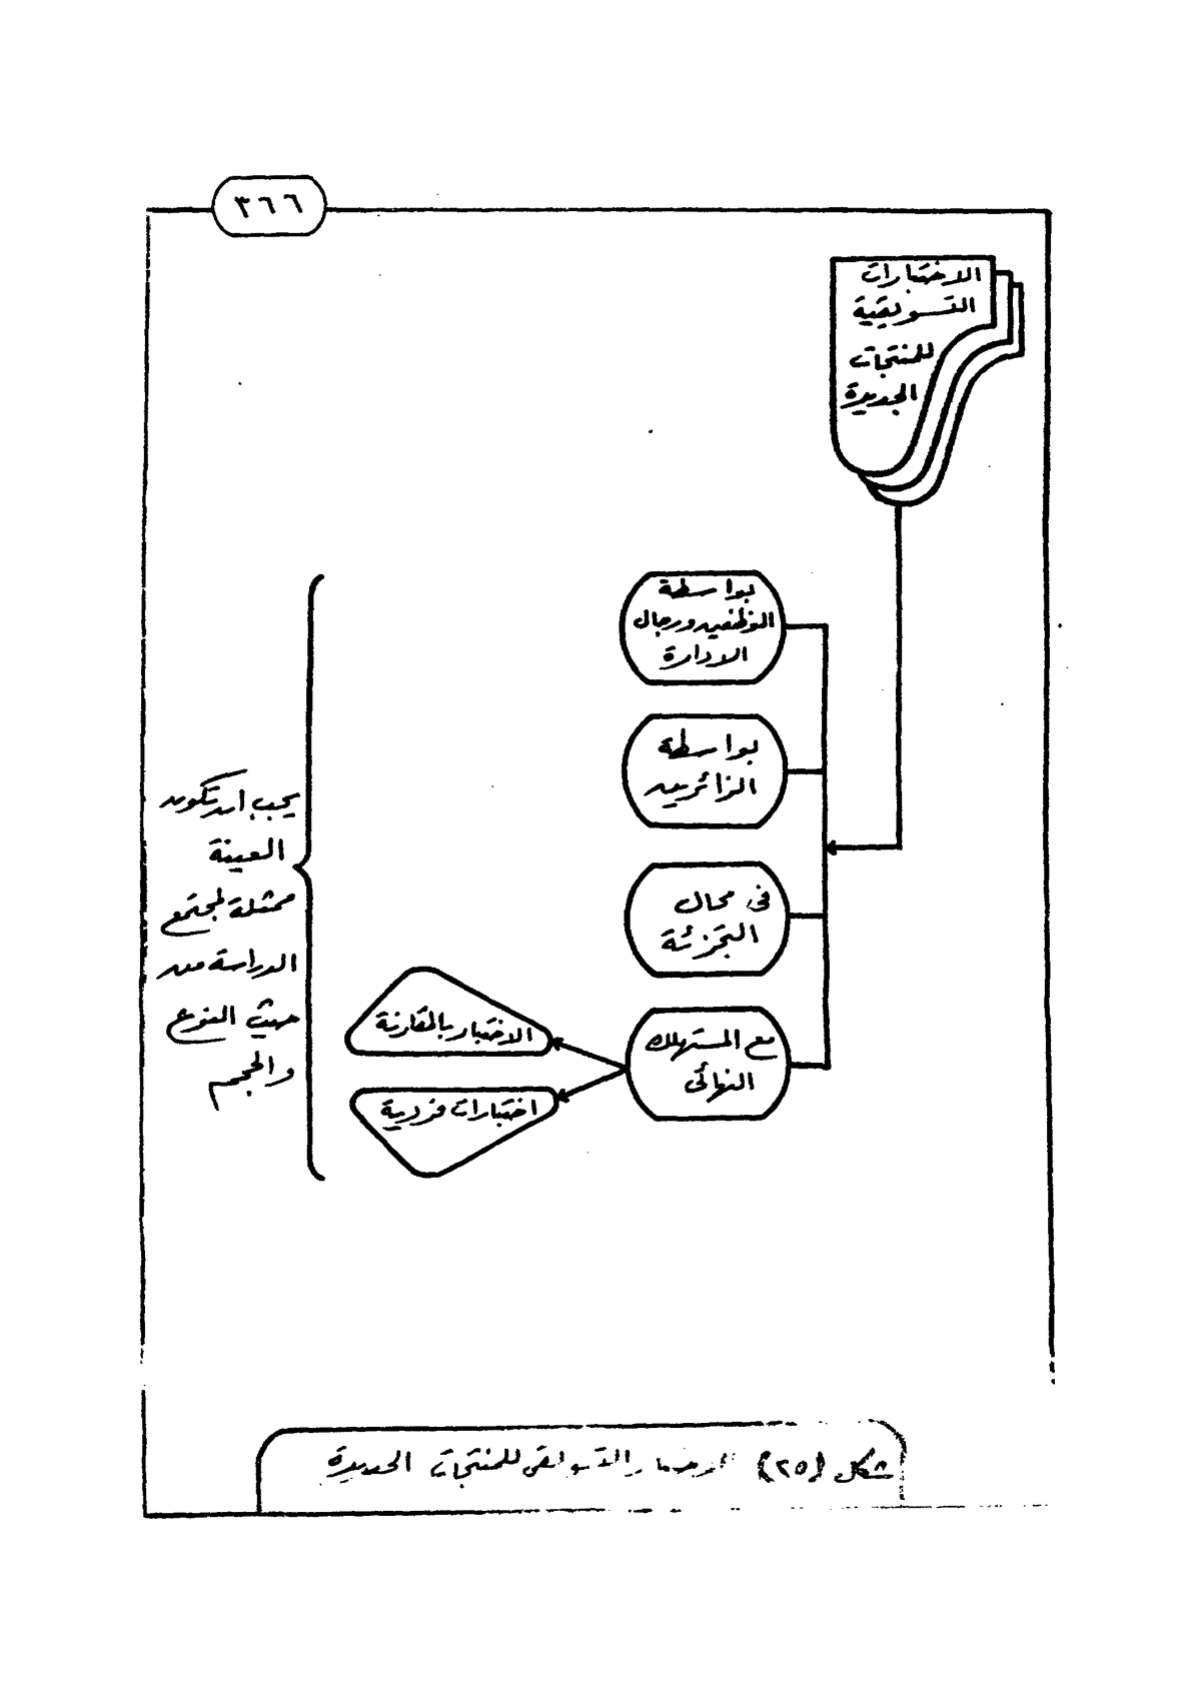 ٣٦٦
الاختبارات
التسويقية
للمنتجات
الجديدة
بواسطة
الموظفين ورجال
الادارة
بواسطة
الزائرين
فى محال
التجزئة
مع المستهلك
النهائى
الاختبار بالمقارنة
اختبارات فردية
يجب ان تكون
العينة
ممثلة لمجتمع
الدراسة من
حيث النوع
والحجم
شكل (٢٥) الاختبار التسويقى للمنتجات الجديدة